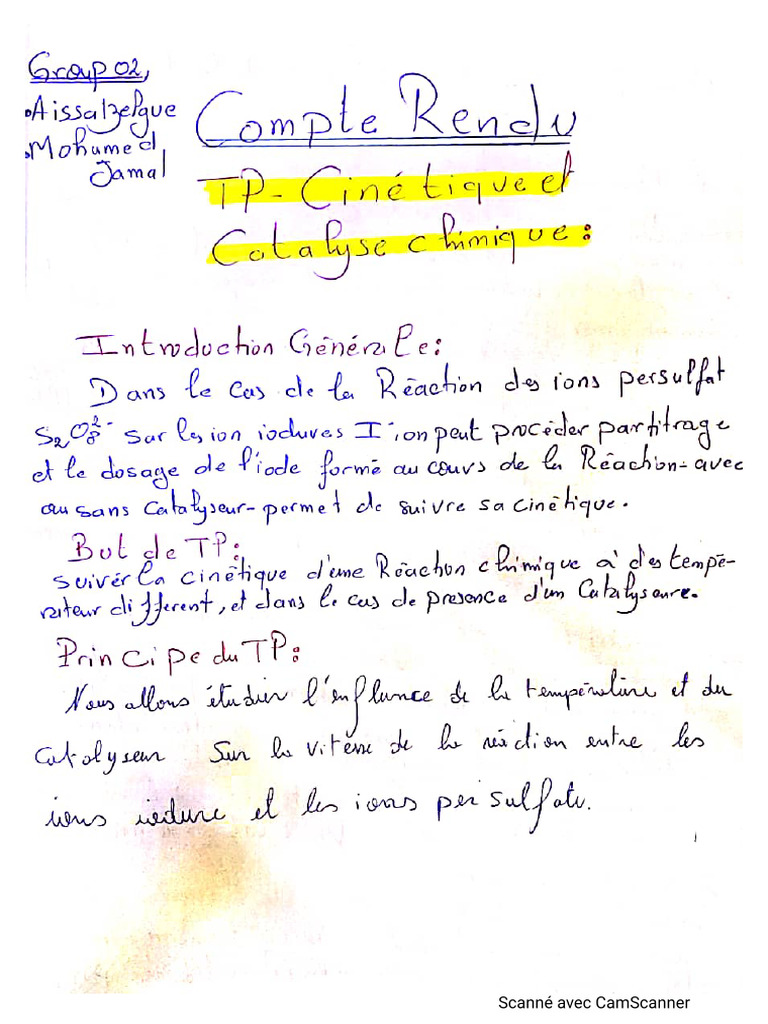 Group 02,
•Aissa Zelgue
•Mohumed Jamal
Compte Rendu
TP-Cinétique et
Catalyse chimique:
Introduction Générale:
Dans le cas de la Réaction des ions persulfat
S₂O₈²⁻ sur les ion iodures I⁻ ion peut procéder par titrage
et le dosage de l'iode formé au cours de la Réaction-avec
ou sans catalyseur-permet de suivre sa cinétique.
But de TP:
suivér la cinétique d'une Réaction chimique à des tempé-
rateur different, et dans le cas de presence d'un Catalyseure.
Principe du TP:
Nous allons étudier l'enflunce de la température et du
catalyseur Sur la vitesse de la réaction entre les
ions iodure et les ions persulfate.
Scanné avec CamScanner